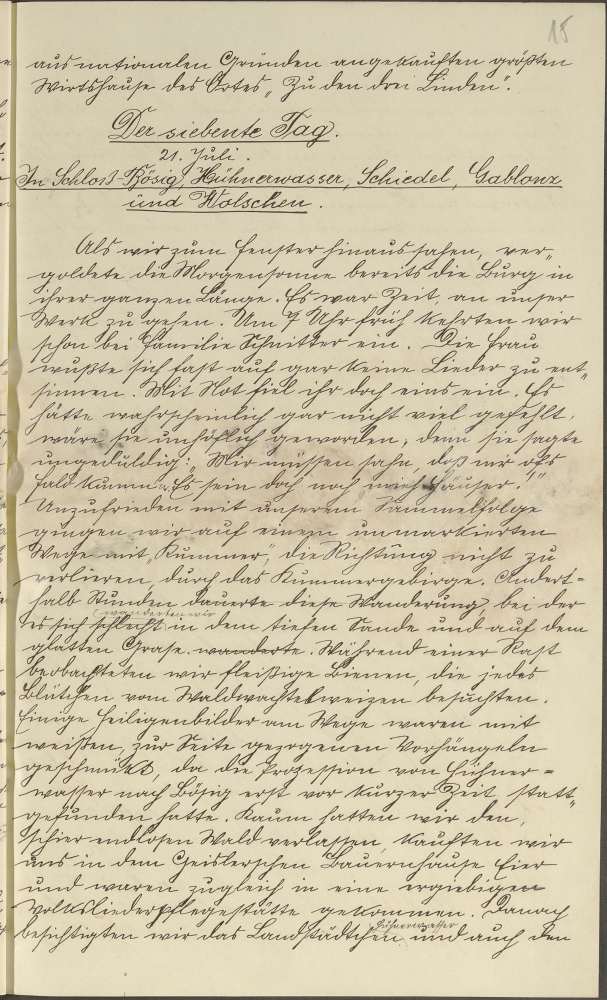 15
aus nationalen Gründen angekauften größten
Wirtshause des Ortes „Zu den drei Linden".
Der siebente Tag.
21. Juli.
In Schloss-Bösig, Hühnerwasser, Schiedel, Gablonz
und Wolschen.
Als wir zum Fenster hinaussahen, ver„
goldete die Morgensonne bereits die Burg in
ihrer ganzen Länge. Es war Zeit, an unser
Werk zu gehen. Um 7 Uhr früh kehrten wir
schon bei Familie Schnitter ein. Die Frau
wußte sich fast auf gar keine Lieder zu ent„
sinnen. Mit Not fiel ihr doch eins ein. Es
hätte wahrscheinlich gar nicht viel gefehlt,
wäre sie unhöflich geworden; denn sie sagte
ungeduldig: „Mir müssen sahn, doß mir ofs
Fald kumm. Es sein doch noch mieh Häuser."
Unzufrieden mit unserem Sammelfolge
gingen wir auf einem unmarkierten
Wege mit „Kummer", die Richtung nicht zu
verlieren, durch das Kummergebirge. Andert=
halb Stunden dauerte diese Wanderung, bei der
wanderten wir
es sich schlecht in dem tiefen Sande und auf dem
glatten Grase wanderte. Während einer Rast
beobachteten wir fleißige Bienen, die jedes
Blütchen vom Waldwachtelweizen besuchten.
Einige Heiligenbilder am Wege waren mit
weißen, zur Seite gezogenen Vorhängeln
geschmückt, da die Prozession von Hühner=
wasser nach Bösig erst vor kurzer Zeit statt„
gefunden hatte. Kaum hatten wir den
schier endlosen Wald verlassen, kauften wir
uns in dem Geislerschen Bauernhause Eier
und waren zugleich in eine ergiebigen
Volksliederpflegestätte gekommen. Danach
Hühnerwasser
besichtigten wir das Landstädtchen und auch den